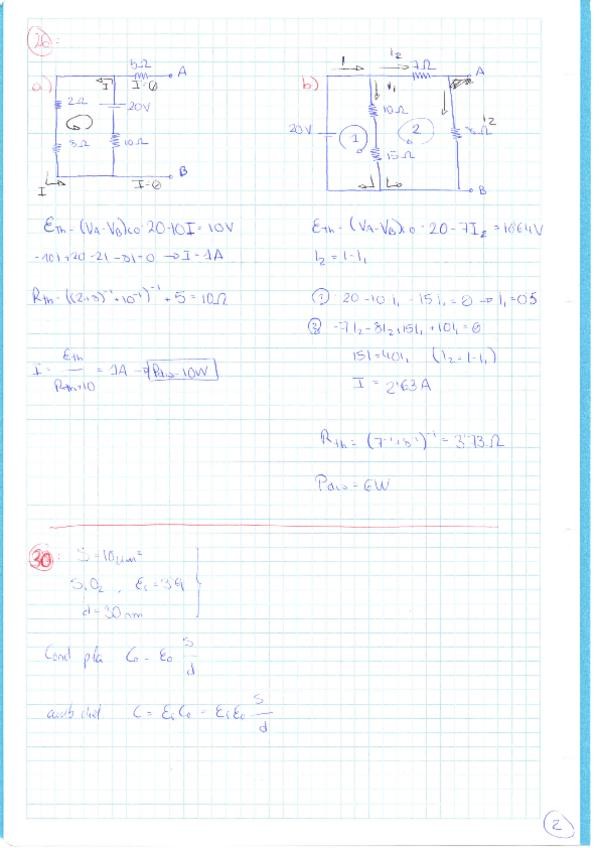 26:
a)
5Ω
A
I=0
I
2Ω
20V
8Ω
10Ω
I
I=0
B
E_Th = (V_A - V_B)_{I=0} = 20 - 10I = 10V
-10I + 20 - 2I - 8I = 0 → I = 1A
R_Th = ((2+8)^{-1} + 10^{-1})^{-1} + 5 = 10Ω
I = E_Th / (R_Th + 10) = 1A → P_{10Ω} = 10W
b)
I
I_2
7Ω
A
I_1
10Ω
20V
1
2
I_2
8Ω
15Ω
B
E_Th = (V_A - V_B)_{I=0} = 20 - 7I_2 = 10'64V
I_2 = I - I_1
① 20 - 10I_1 - 15I_1 = 0 → I_1 = 0'8
② -7I_2 - 8I_2 + 15I_1 + 10I_1 = 0
15I = 40I_1 (I_2 = I - I_1)
I = 2'63A
R_Th = (7^{-1} + 8^{-1})^{-1} = 3'73Ω
P_{10Ω} = 6W
30:
S = 10μm²
SiO_2, ε_r = 3'9
d = 30nm
Cond pla C_0 = ε_0 S/d
amb diel C = ε_r C_0 = ε_r ε_0 S/d
2